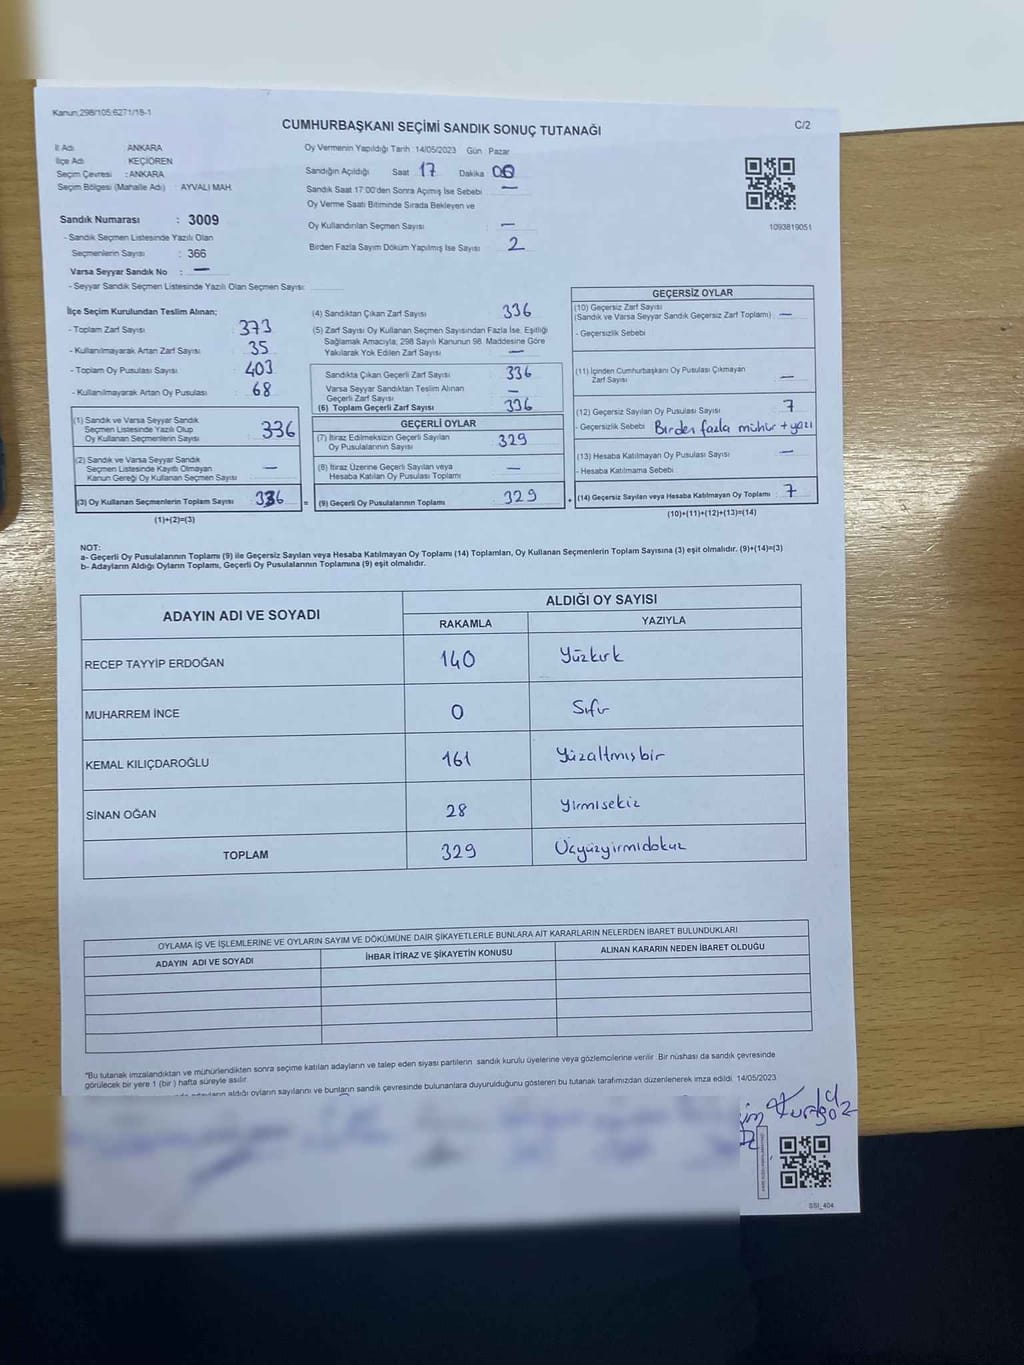 Kanun:298/105;6271/18-1
CUMHURBAŞKANI SEÇİMİ SANDIK SONUÇ TUTANAĞI
C/2
İl Adı ANKARA
İlçe Adı KEÇİÖREN
Seçim Çevresi : ANKARA
Seçim Bölgesi (Mahalle Adı) : AYVALI MAH.
Oy Vermenin Yapıldığı Tarih :14/05/2023 Gün : Pazar
Sandığın Açıldığı Saat 17 Dakika 00
Sandık Saat 17:00'den Sonra Açımış İse Sebebi —
Oy Verme Saati Bitiminde Sırada Bekleyen ve
Oy Kullandırılan Seçmen Sayısı —
Birden Fazla Sayım Döküm Yapılmış İse Sayısı 2
1093819051
Sandık Numarası : 3009
- Sandık Seçmen Listesinde Yazılı Olan
Seçmenlerin Sayısı : 366
Varsa Seyyar Sandık No : —
- Seyyar Sandık Seçmen Listesinde Yazılı Olan Seçmen Sayısı:
İlçe Seçim Kurulundan Teslim Alınan;
- Toplam Zarf Sayısı : 373
- Kullanılmayarak Artan Zarf Sayısı : 35
- Toplam Oy Pusulası Sayısı : 403
- Kullanılmayarak Artan Oy Pusulası : 68
(1) Sandık ve Varsa Seyyar Sandık
Seçmen Listesinde Yazılı Olup
Oy Kullanan Seçmenlerin Sayısı 336
(2) Sandık ve Varsa Seyyar Sandık
Seçmen Listesinde Kayıtlı Olmayan
Kanun Gereği Oy Kullanan Seçmen Sayısı —
(3) Oy Kullanan Seçmenlerin Toplam Sayısı 336
(1)+(2)=(3)
(4) Sandıktan Çıkan Zarf Sayısı 336
(5) Zarf Sayısı Oy Kullanan Seçmen Sayısından Fazla İse, Eşitliği
Sağlamak Amacıyla, 298 Sayılı Kanunun 98. Maddesine Göre
Yakılarak Yok Edilen Zarf Sayısı —
Sandıkta Çıkan Geçerli Zarf Sayısı 336
Varsa Seyyar Sandıktan Teslim Alınan
Geçerli Zarf Sayısı —
(6) Toplam Geçerli Zarf Sayısı 336
GEÇERLİ OYLAR
(7) İtiraz Edilmeksizin Geçerli Sayılan
Oy Pusulalarının Sayısı 329
(8) İtiraz Üzerine Geçerli Sayılan veya
Hesaba Katılan Oy Pusulası Toplamı —
= (9) Geçerli Oy Pusulalarının Toplamı 329 +
GEÇERSİZ OYLAR
(10) Geçersiz Zarf Sayısı
(Sandık ve Varsa Seyyar Sandık Geçersiz Zarf Toplamı) —
- Geçersizlik Sebebi
(11) İçinden Cumhurbaşkanı Oy Pusulası Çıkmayan
Zarf Sayısı —
(12) Geçersiz Sayılan Oy Pusulası Sayısı 7
- Geçersizlik Sebebi Birden fazla mühür + yazı
(13) Hesaba Katılmayan Oy Pusulası Sayısı —
- Hesaba Katılmama Sebebi
(14) Geçersiz Sayılan veya Hesaba Katılmayan Oy Toplamı 7
(10)+(11)+(12)+(13)=(14)
NOT:
a- Geçerli Oy Pusulalarının Toplamı (9) ile Geçersiz Sayılan veya Hesaba Katılmayan Oy Toplamı (14) Toplamları, Oy Kullanan Seçmenlerin Toplam Sayısına (3) eşit olmalıdır. (9)+(14)=(3)
b- Adayların Aldığı Oyların Toplamı, Geçerli Oy Pusulalarının Toplamına (9) eşit olmalıdır.
ADAYIN ADI VE SOYADI ALDIĞI OY SAYISI
RAKAMLA YAZIYLA
RECEP TAYYİP ERDOĞAN 140 Yüzkırk
MUHARREM İNCE 0 Sıfır
KEMAL KILIÇDAROĞLU 161 Yüzaltmışbir
SİNAN OĞAN 28 Yirmisekiz
TOPLAM 329 Üçyüzyirmidokuz
OYLAMA İŞ VE İŞLEMLERİNE VE OYLARIN SAYIM VE DÖKÜMÜNE DAİR ŞİKAYETLERLE BUNLARA AİT KARARLARIN NELERDEN İBARET BULUNDUKLARI
ADAYIN ADI VE SOYADI İHBAR İTİRAZ VE ŞİKAYETİN KONUSU ALINAN KARARIN NEDEN İBARET OLDUĞU
*Bu tutanak imzalandıktan ve mühürlendikten sonra seçime katılan adayların ve talep eden siyasi partilerin sandık kurulu üyelerine veya gözlemcilerine verilir. Bir nüshası da sandık çevresinde
görülecek bir yere 1 (bir) hafta süreyle asılır.
aldığı oyların sayılarını ve bunların sandık çevresinde bulunanlara duyurulduğunu gösteren bu tutanak tarafımızdan düzenlenerek imza edildi. 14/05/2023
SSI_404